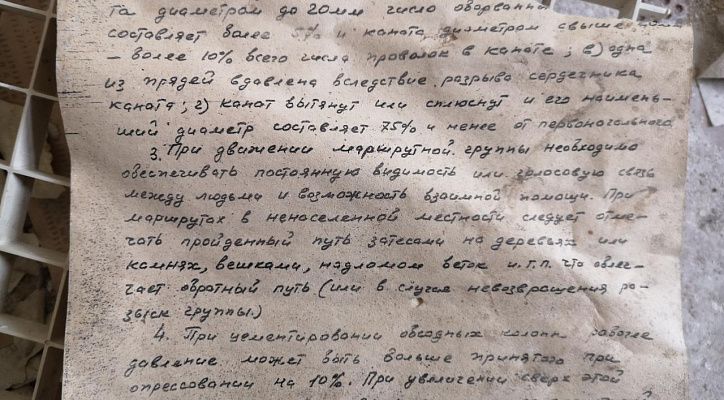 та диаметром до 20мм число оборванн
составляет более 5% и каната диаметром свыше
— более 10% всего числа проволок в канате; в) одна
из прядей вдавлена вследствие разрыва сердечника
каната; г) канат вытянут или сплюснут и его наимень-
ший диаметр составляет 75% и менее от первоначального
3. При движении маршрутной группы необходимо
обеспечивать постоянную видимость или голосовую связь
между людьми и возможность взаимной помощи. При
маршрутах в ненаселенной местности следует отме-
чать пройденный путь затесами на деревьях или
камнях, вешками, надломом веток и т.п. что облег-
чает обратный путь (или в случае невозвращения ро-
зыск группы.)
4. При цементировании обсадных колонн рабочее
давление может быть больше принятого при
опрессовании на 10%. При увеличении сверх этой